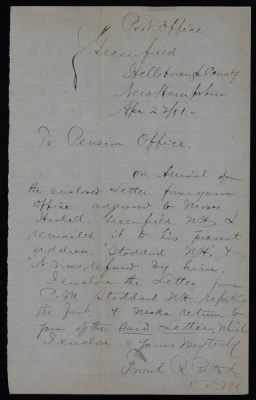 Post Office
Greenfield
Hillsborough County
New Hampshire
Apr 23/91 -
To Pension Office.
on Arrival of
the enclosed Letter from your
Office adressed to
Haskell. Greenfield NH, I
remailed it to his present
address, Stoddard NH. &
it was refused by him.
I enclose the Letter from
P.M. Stoddard NH. reporting
the fact. & make return to
you of the said Letter, which
I enclose Yours Respectfully
Frank
P.M